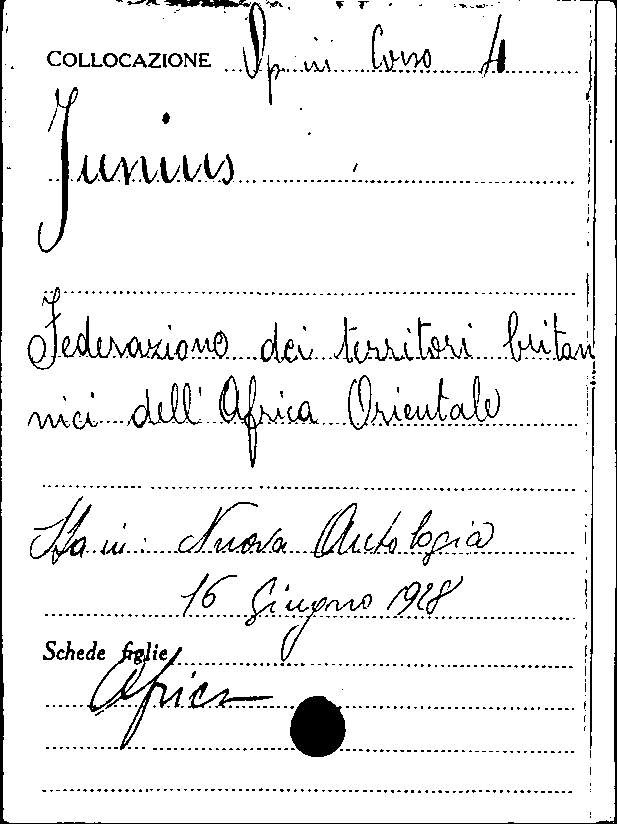 COLLOCAZIONE Op in Corso 4
Junius
Federazione dei territori britan
nici dell' Africa Orientale
Sta in: Nuova Antologia
16 Giugno 1928
Schede figlie
Africa